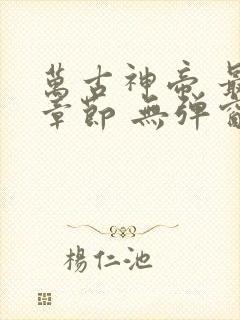 萬古神帝 最
章節 無彈窗
楊仁池